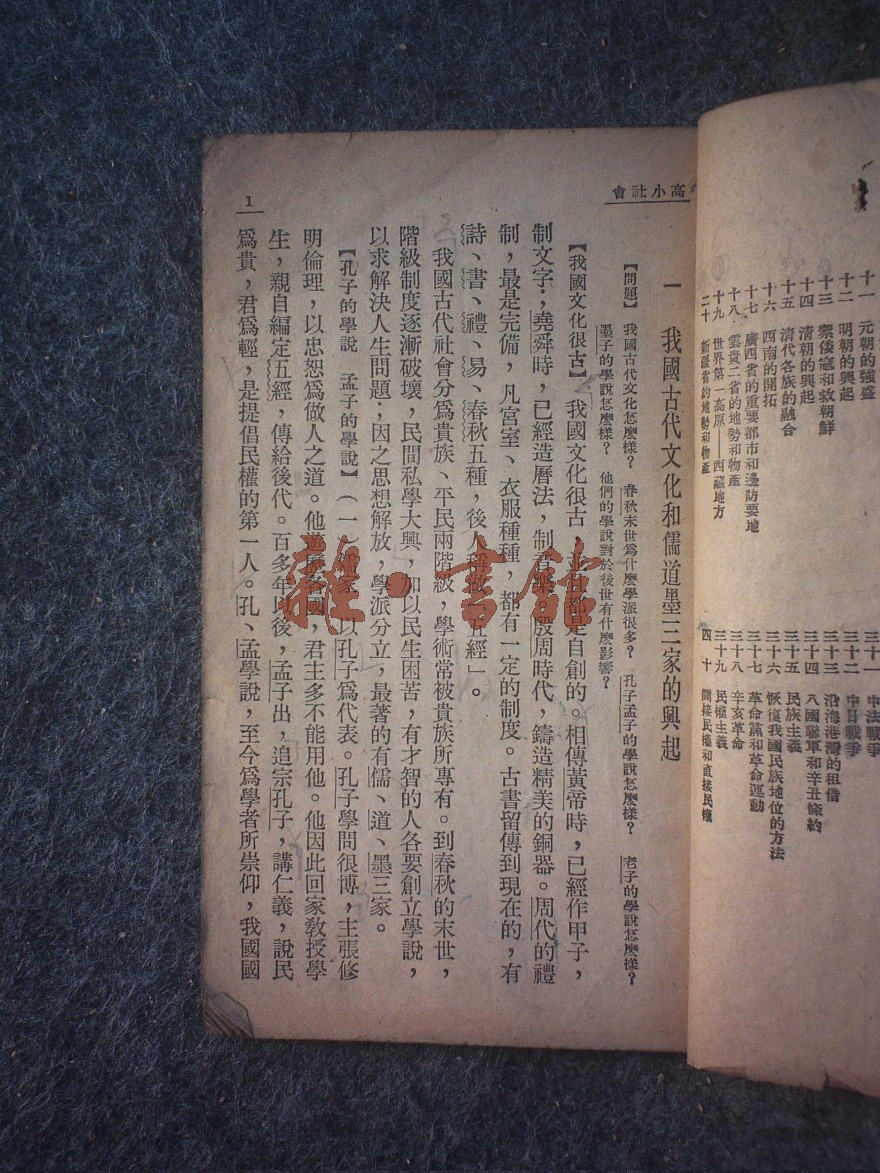 十一 元朝的強盛
十二 明朝的興起
十三 禦倭寇和救朝鮮
十四 清朝的興起
十五 清代各族的融合
十六 西南的開拓
十七 廣西省的重要都市和邊防要地
十八 雲貴二省的地勢和物產
十九 世界第一高原——西藏地方
二十 新疆省的地勢和物產
三十一 中法戰爭
三十二 中日戰爭
三十三 沿海港灣的租借
三十四 八國聯軍和辛丑條約
三十五 民族主義
三十六 恢復我國民族地位的方法
三十七 革命黨和革命運動
三十八 辛亥革命
三十九 民權主義
四十 間接民權和直接民權
高小社會
一 我國古代文化和儒道墨三家的興起
【問題】 我國古代文化怎麼樣？ 春秋末世爲什麼學派很多？ 孔子孟子的學說怎麼樣？ 老子的學說怎麼樣？
墨子的學說怎麼樣？ 他們的學說對於後世有什麼影響？
【我國文化很古】 我國文化很古，並且都是自創的。相傳黃帝時，已經作甲子，
制文字；堯舜時，已經造曆法，制音樂。殷周時代，鑄造精美的銅器。周代的禮
制，最是完備，凡宮室、衣服種種，都有一定的制度。古書留傳到現在的，有
詩、書、禮、易、春秋五種，後人稱做「五經」。
我國古代社會分爲貴族、平民兩階級，學術常被貴族所專有。到春秋的末世，
階級制度逐漸破壞，民間私學大興，加以民生困苦，有才智的人各要創立學說，
以求解決人生問題；因之思想解放，學派分立，最著的有儒、道、墨三家。
【孔子的學說 孟子的學說】 (一)儒家 以孔子爲代表。孔子學問很博，主張修
明倫理，以忠恕爲做人之道。他遊歷各國，君主多不能用他。他因此回家教授學
生，親自編定五經，傳給後代。百多年以後，孟子出，追宗孔子，講仁義，說民
爲貴，君爲輕，是提倡民權的第一人。孔、孟學說，至今爲學者所崇仰，我國國
1
雜·書館